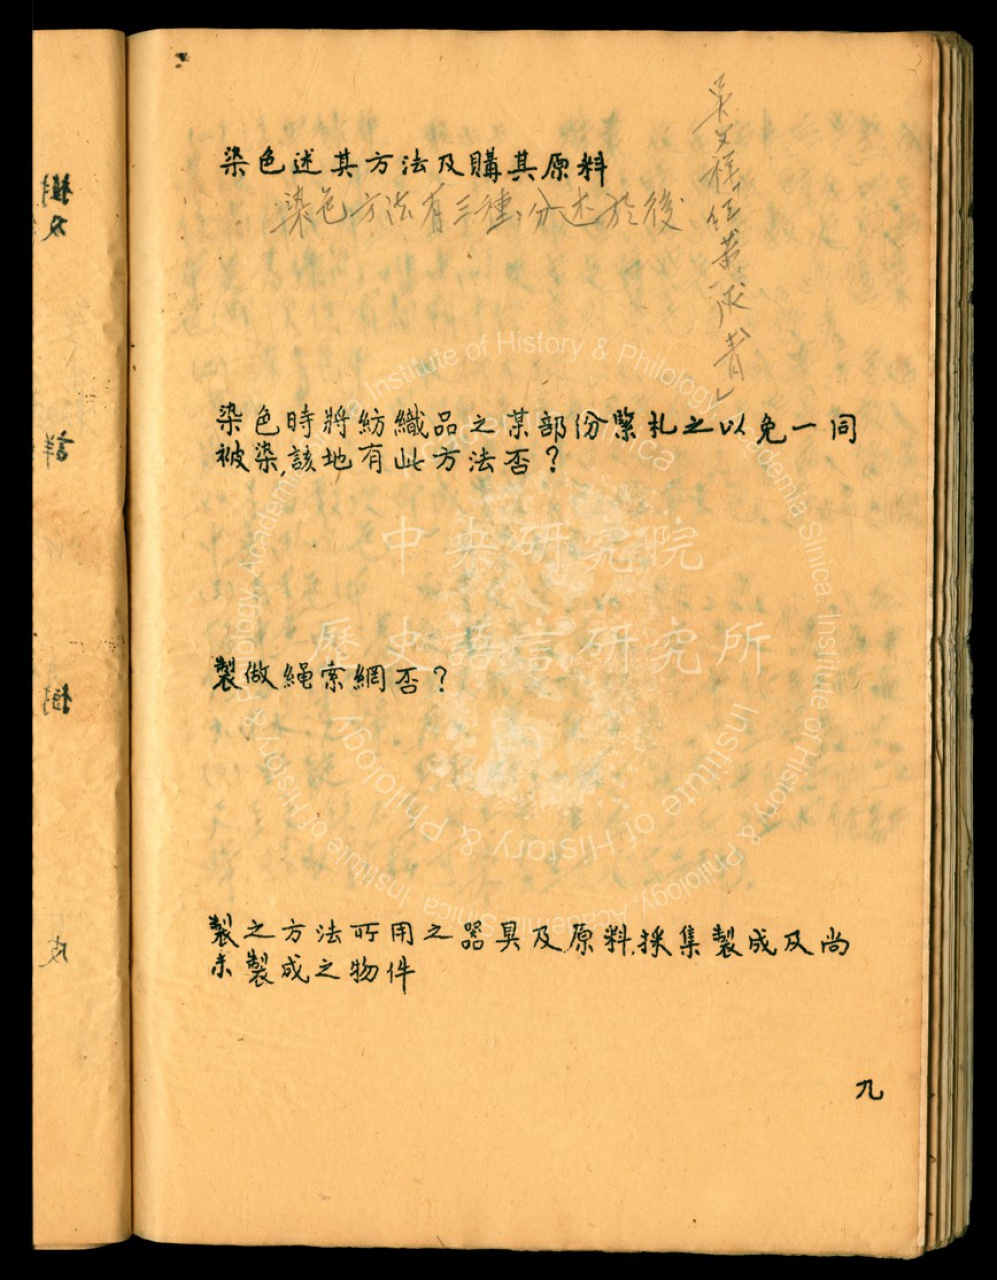 染色述其方法及購其原料
染色方法有三種,分述於後
染色時將紡織品之某部份緊札之以免一同
被染,該地有此方法否?
製做繩索網否?
製之方法所用之器具及原料,採集製成及尚
未製成之物件
九
中央研究院
歷史語言研究所
Institute of History & Philology, Academia Sinica